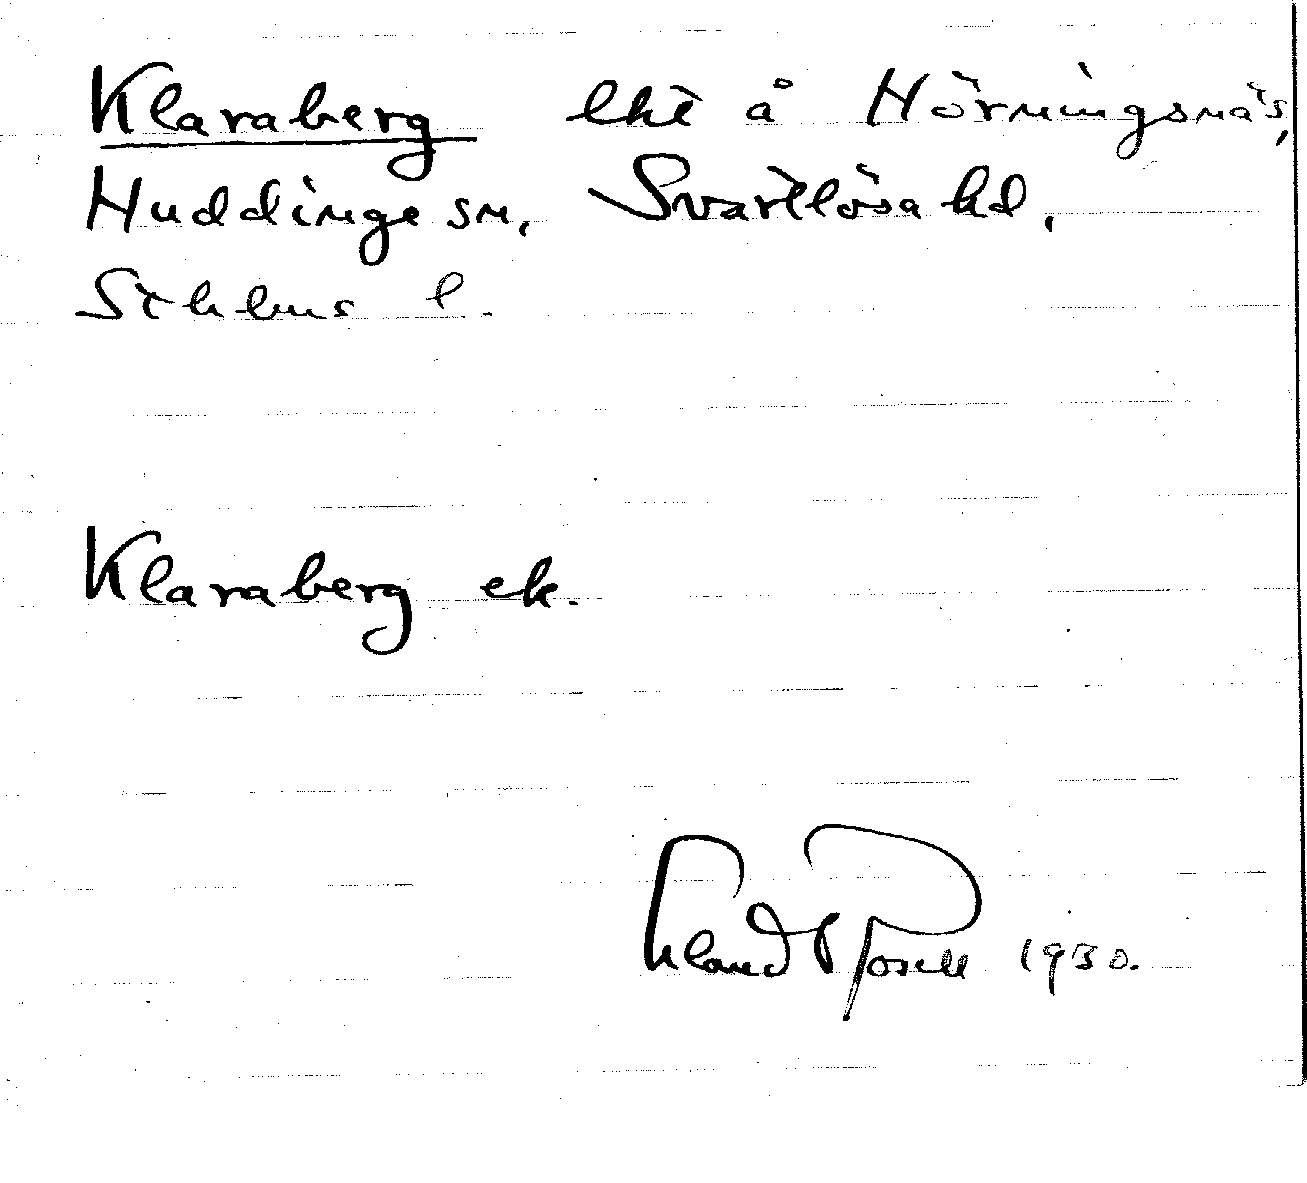 Klaraberg lht å Hörningsnäs,
Huddinge sn, Svartlösa hd,
Sthlms l.
Klaraberg ek.
Erland Rosell 1930.